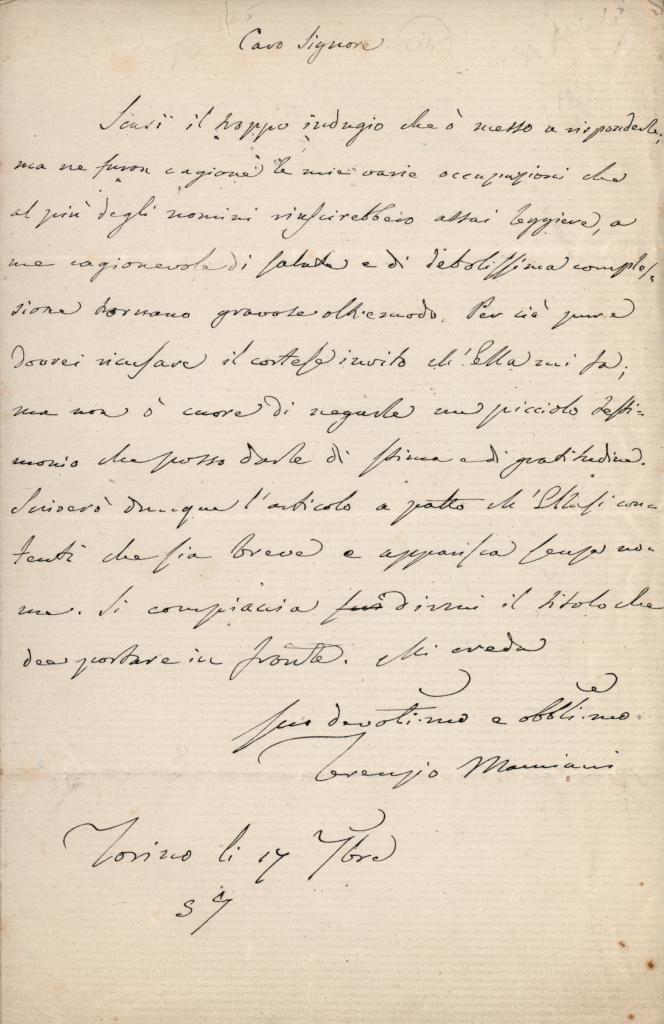 Caro Signore
Scusi il troppo indugio che ò messo a risponderle;
ma ne furon cagione le mie varie occupazioni che
al più degli uomini riuscirebbero assai leggiere, a
me cagionevole di salute e di debolissima comples-
sione tornano gravose oltremodo. Per ciò pure
dovrei ricusare il cortese invito ch'Ella mi fa;
ma non ò cuore di negarle un picciolo testi-
monio che posso darle di stima e di gratitudine.
Scriverò dunque l'articolo a patto ch'Ella si con-
tenti che sia breve e apparisca senza no-
me. Si compiaccia dirmi il titolo che
dee portare in fronte. Mi creda
suo devoti.mo e obbli.mo
Terenzio Mamiani
Torino li 17 7bre
57